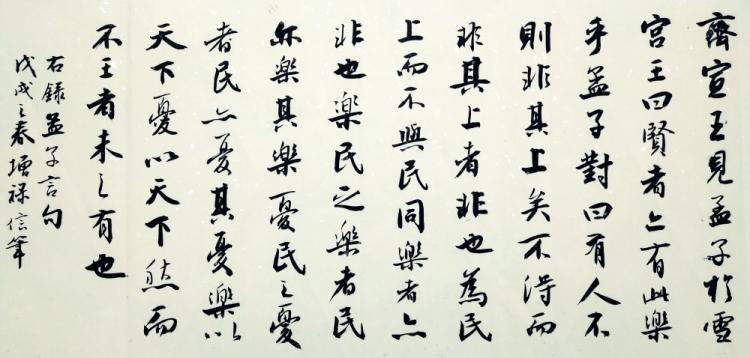 齊宣王見孟子於雪
宮王曰賢者亦有此樂
乎孟子對曰有人不
則非其上矣不得而
非其上者非也為民
上而不與民同樂者亦
非也樂民之樂者民
亦樂其樂憂民之憂
者民亦憂其憂樂以
天下憂以天下然而
不王者未之有也
右錄孟子言句
戊戌之春增祿信筆